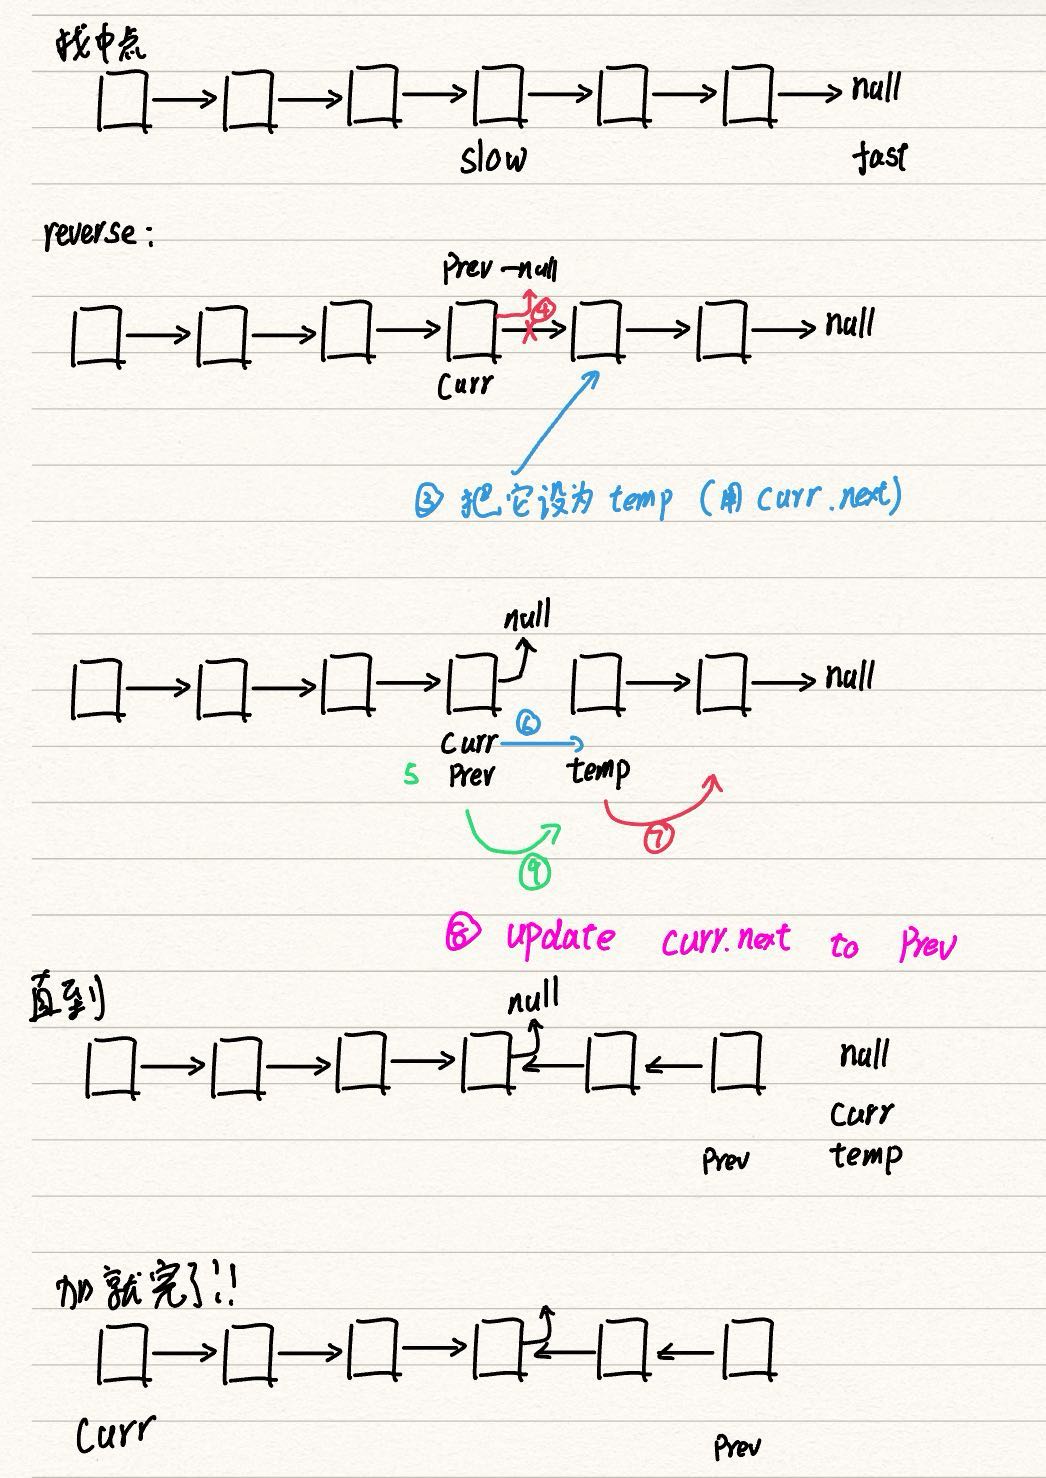 找中点
null
slow fast
reverse:
Prev -null
④
null
Curr
③ 把它设为 temp (用 curr.next)
null
null
⑥
Curr
5 Prev temp
⑦
⑨
⑧ update curr.next to Prev
直到
null
null
Curr
Prev temp
加就完了!!
Curr
Prev